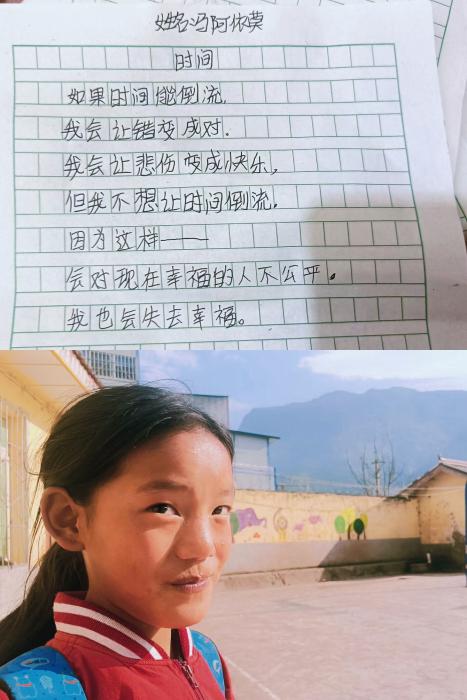 姓名冯阿依莫
时间
如果时间能倒流,
我会让错变成对.
我会让悲伤变成快乐,
但我不想让时间倒流.
因为这样——
会对现在幸福的人不公平。
我也会失去幸福。